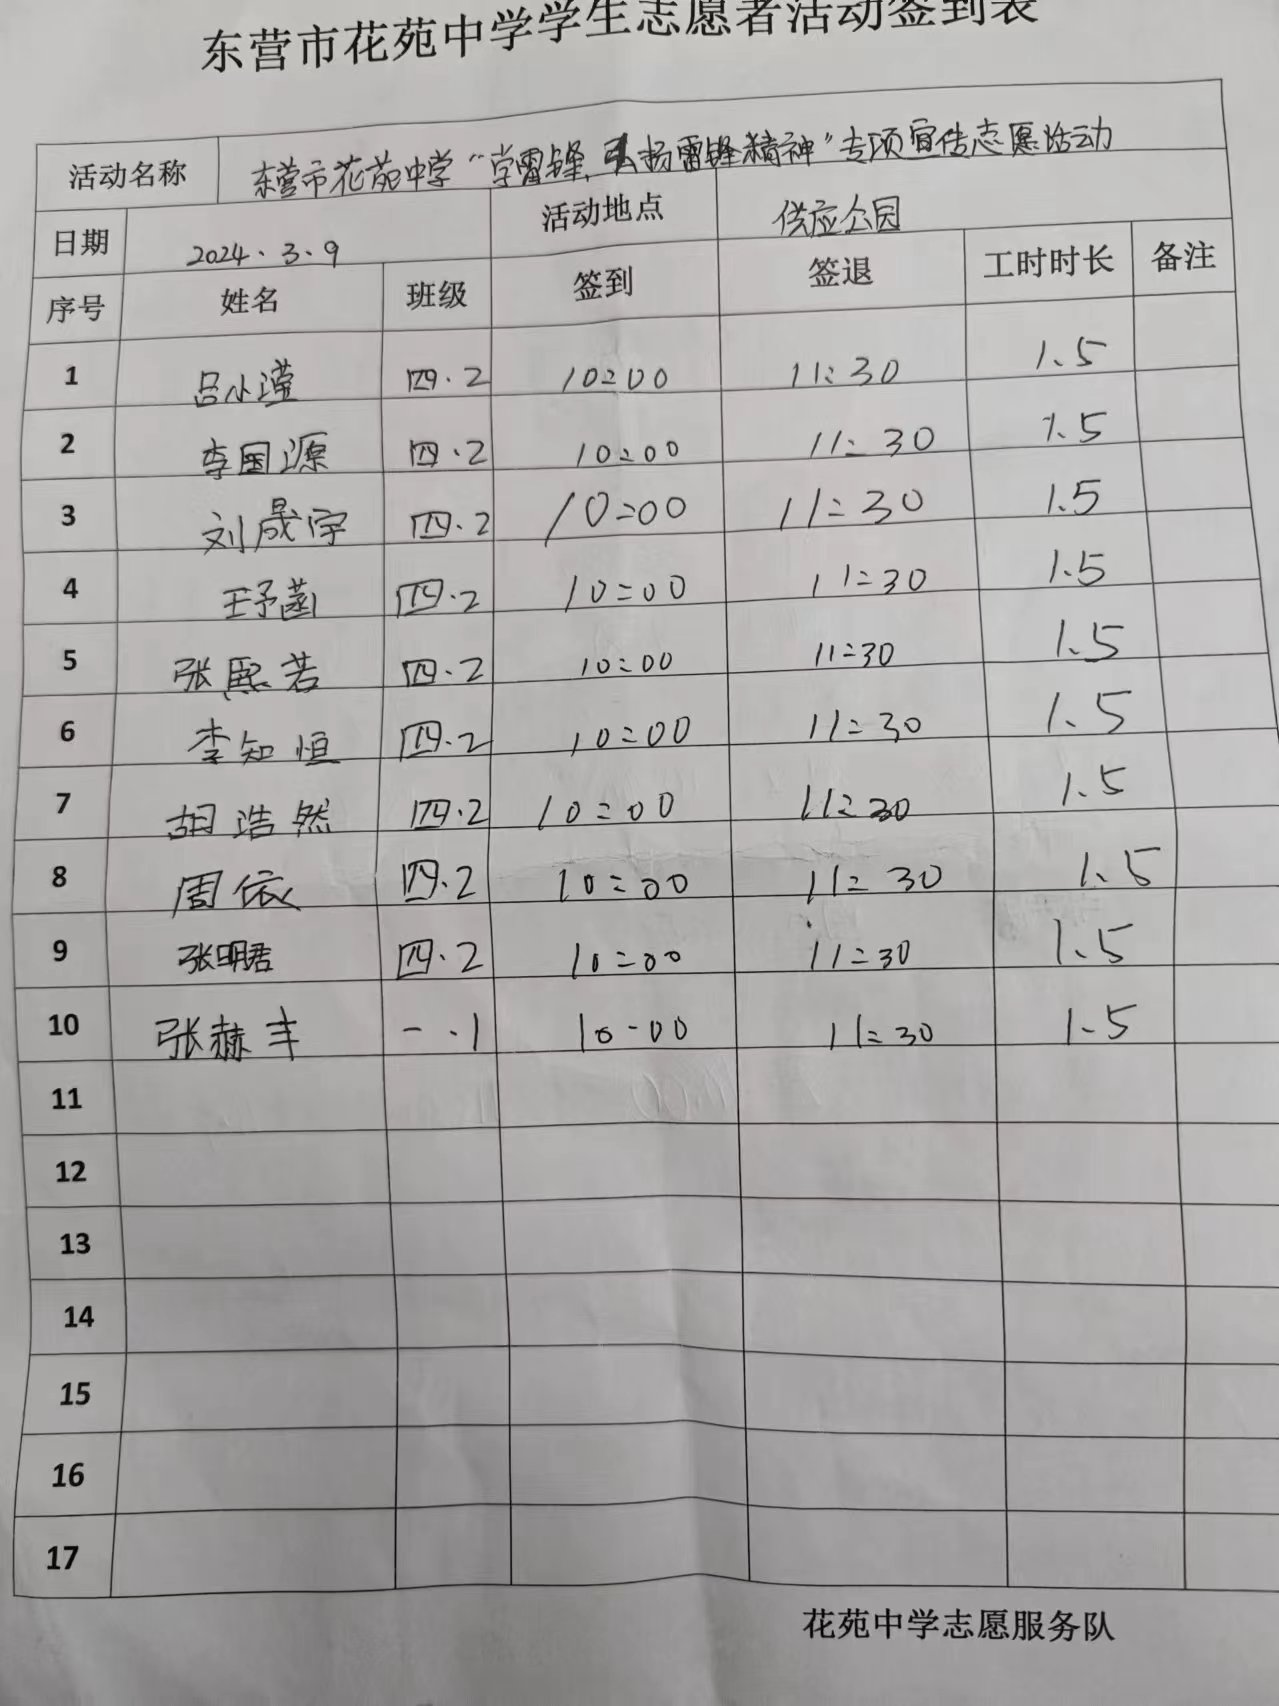 东营市花苑中学学生志愿者活动签到表
活动名称 东营市花苑中学“学雷锋、弘扬雷锋精神”专项宣传志愿活动
日期 2024.3.9 活动地点 供应公园
序号 姓名 班级 签到 签退 工时时长 备注
1 吕小滢 四.2 10:00 11:30 1.5
2 李国源 四.2 10:00 11:30 1.5
3 刘晟宇 四.2 10:00 11:30 1.5
4 王予菡 四.2 10:00 11:30 1.5
5 张熙若 四.2 10:00 11:30 1.5
6 李知恒 四.2 10:00 11:30 1.5
7 胡浩然 四.2 10:00 11:30 1.5
8 周依 四.2 10:00 11:30 1.5
9 张明君 四.2 10:00 11:30 1.5
10 张赫丰 一.1 10-00 11:30 1.5
11
12
13
14
15
16
17
花苑中学志愿服务队